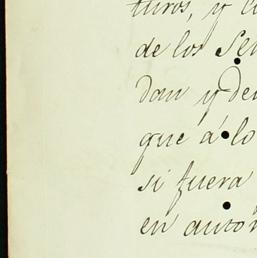 turos, y c
de los Se
dan y de
que á lo
si fuera
en auto